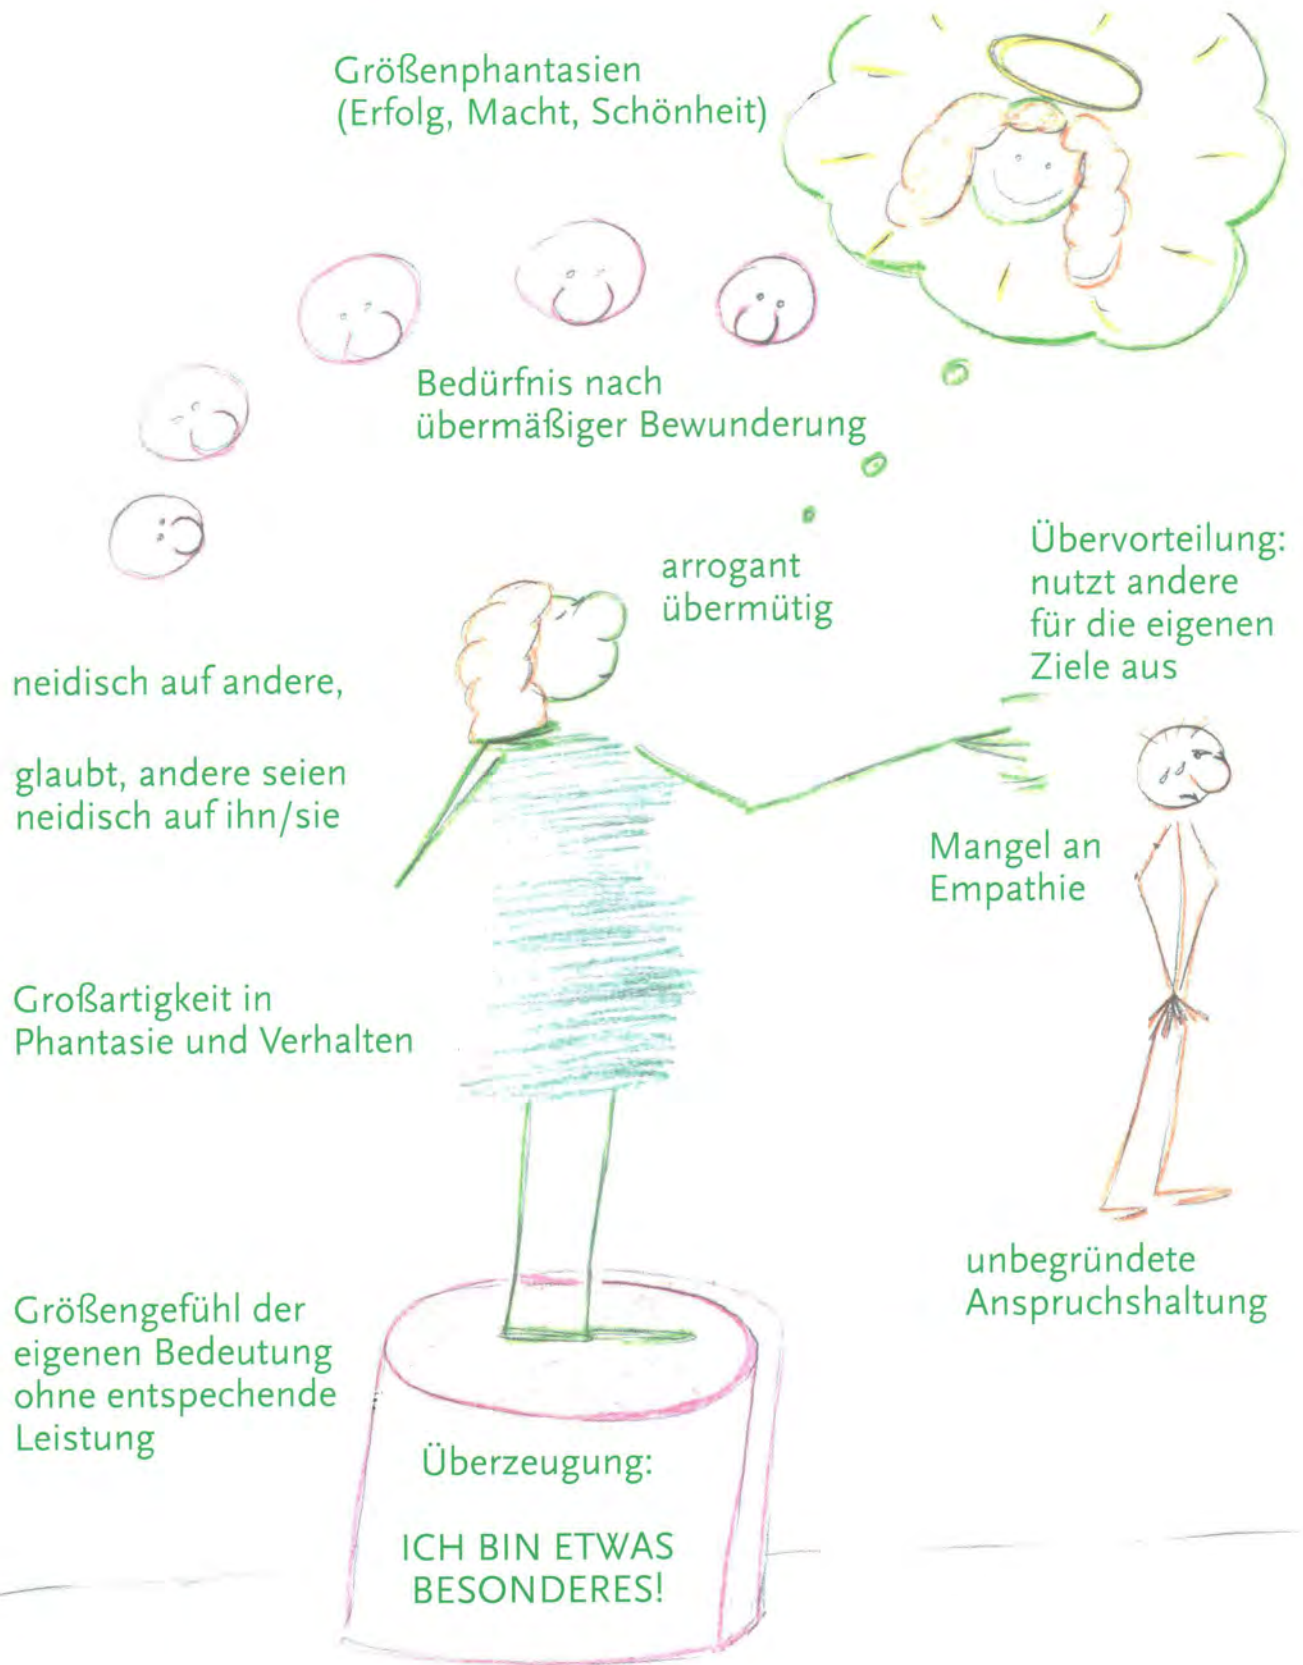 Größenphantasien
(Erfolg, Macht, Schönheit)
Bedürfnis nach
übermäßiger Bewunderung
arrogant
übermütig
Übervorteilung:
nutzt andere
für die eigenen
Ziele aus
neidisch auf andere,
glaubt, andere seien
neidisch auf ihn/sie
Mangel an
Empathie
Großartigkeit in
Phantasie und Verhalten
unbegründete
Anspruchshaltung
Größengefühl der
eigenen Bedeutung
ohne entspechende
Leistung
Überzeugung:
ICH BIN ETWAS
BESONDERES!